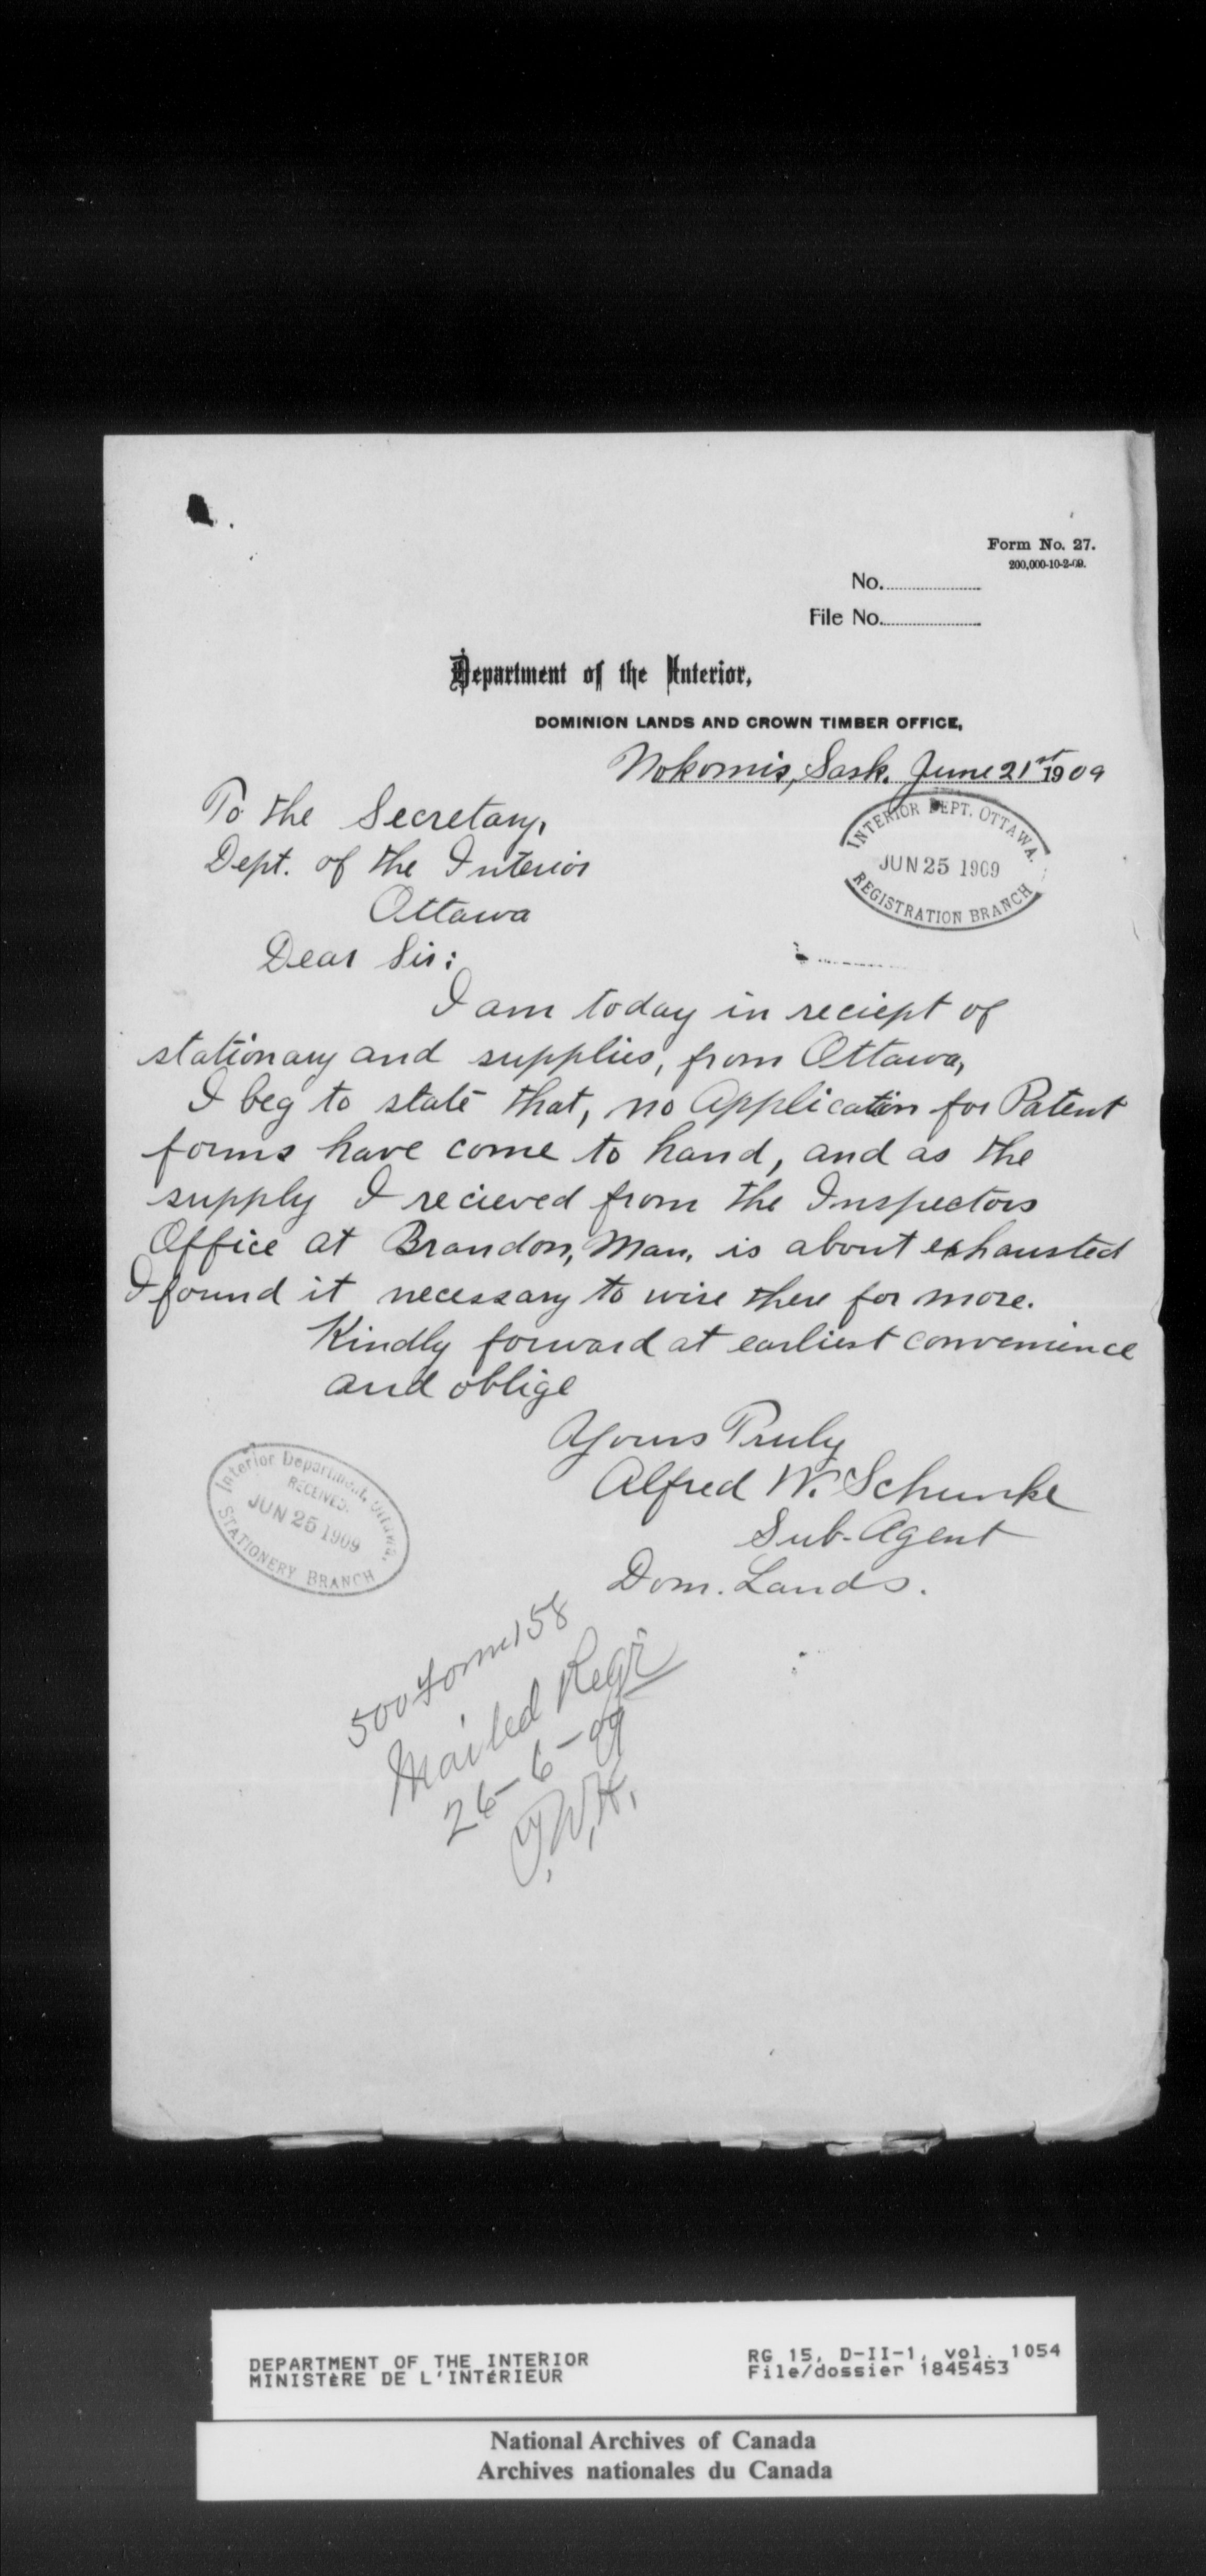 Form No. 27.
200,000-10-2-09.
No.
File No.
Department of the Interior,
DOMINION LANDS AND CROWN TIMBER OFFICE,
Nokomis, Sask. June 21st 1909
To the Secretary,
Dept. of the Interior
Ottawa
INTERIOR DEPT. OTTAWA.
JUN 25 1909
REGISTRATION BRANCH
Dear Sir:
I am today in reciept of
stationary and supplies, from Ottawa,
I beg to state that, no Application for Patent
forms have come to hand, and as the
supply I recieved from the Inspectors
Office at Brandon, Man, is about exhausted
I found it necessary to wire there for more.
Kindly forward at earliest convenience
and oblige
Yours Truly
Alfred W. Schunke
Sub-Agent
Dom. Lands.
Interior Department, Ottawa.
RECEIVED.
JUN 25 1909
STATIONERY BRANCH
500 Form 158
Mailed Regr
26-6-09
DEPARTMENT OF THE INTERIOR
MINISTÈRE DE L'INTÉRIEUR
RG 15, D-II-1, vol. 1054
File/dossier 1845453
National Archives of Canada
Archives nationales du Canada